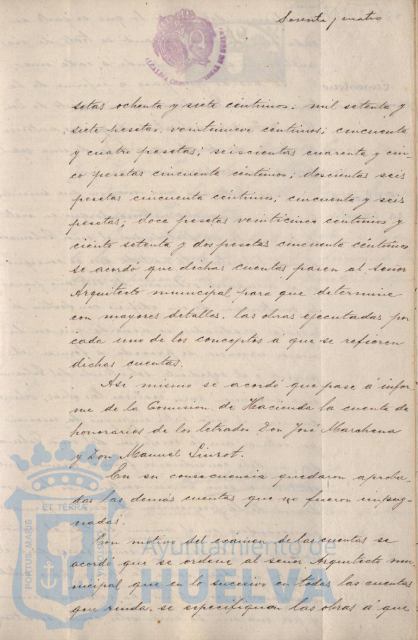 Sesenta y cuatro
setas ochenta y siete céntimos; mil setenta y
siete pesetas, veintinueve céntimos; cincuenta
y cuatro pesetas; seiscientas cuarenta y cin-
co pesetas cincuenta céntimos; doscientas seis
pesetas cincuenta céntimos; cincuenta y seis
pesetas; doce pesetas veinticinco céntimos y
ciento setenta y dos pesetas cincuenta céntimos
se acordó que dichas cuentas pasen al señor
Arquitecto municipal para que determine
con mayores detalles, las obras ejecutadas por
cada uno de los conceptos a que se refieren
dichas cuentas.
Así mismo se acordó que pase á infor-
me de la Comisión de Hacienda la cuenta de
honorarios de los letrados Don José Marchena
y Don Manuel Siurot.
En su consecuencia quedaron aproba-
das las demás cuentas que no fueron impug-
nadas.
Con motivo del examen de las cuentas se
acordó que se ordene al señor Arquitecto mu-
nicipal que en lo sucesivo en todas las cuentas
que rinda, se especifiquen las obras á que
Ayuntamiento de
HUELVA
PORTUS MARIS
ET TERRAE